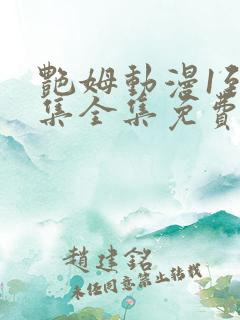 艷姆動漫1至
集全集免費
趙建銘
未经同意禁止转载